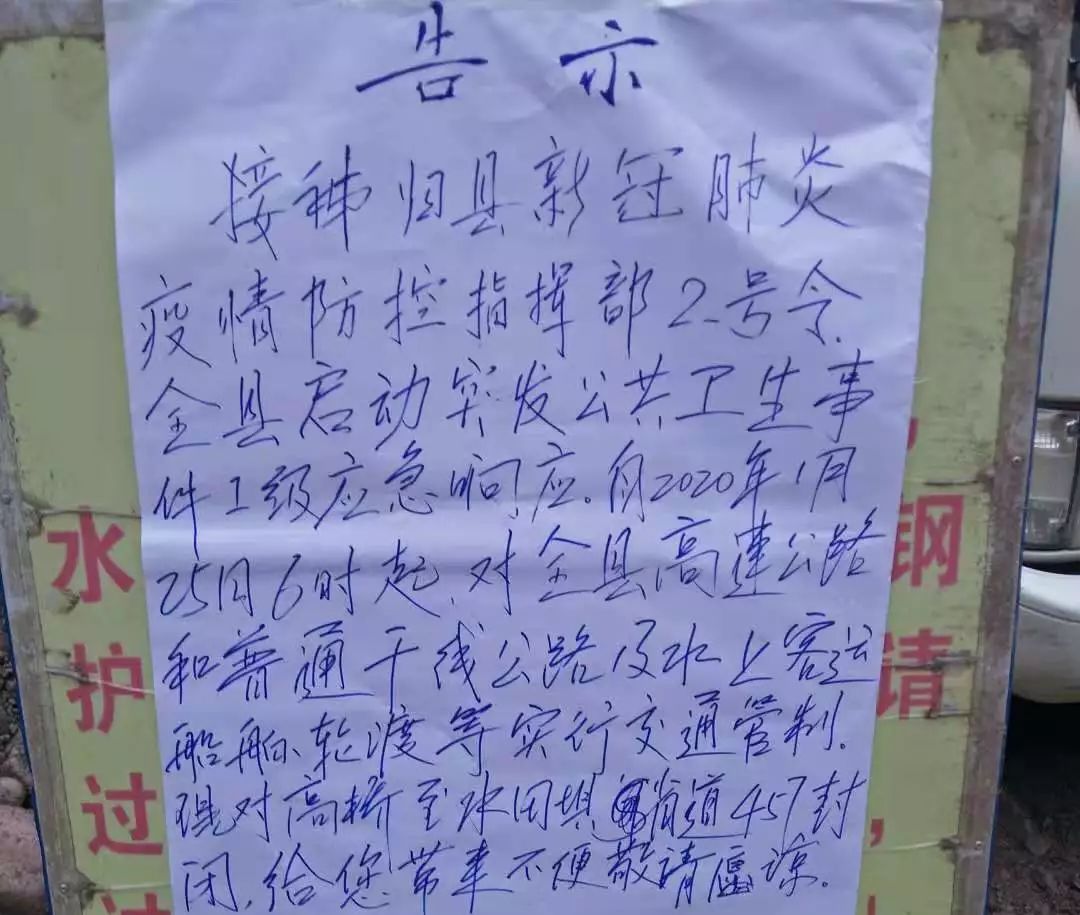 告示
接秭归县新冠肺炎
疫情防控指挥部2号令.
全县启动突发公共卫生事
件1级应急响应.自2020年1月
25日6时起.对全县高速公路
和普通干线公路及水上客运
船舶、轮渡等实行交通管制.
现对高桥至水田坝省道457封
闭,给您带来不便敬请原谅.
水
护
过
过
,
钢
请
,